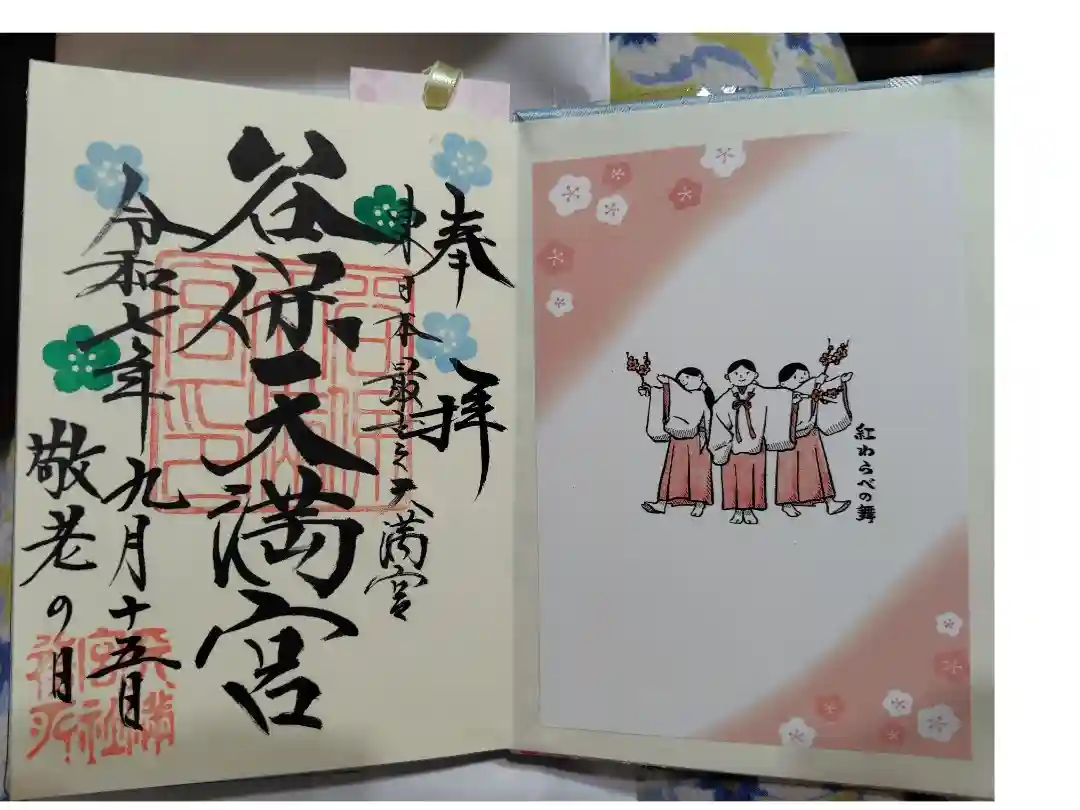 紅わらべの舞
奉拝
東日本最古之天満宮
谷保天満宮
令和七年九月十五日
敬老の日
天満宮社務所